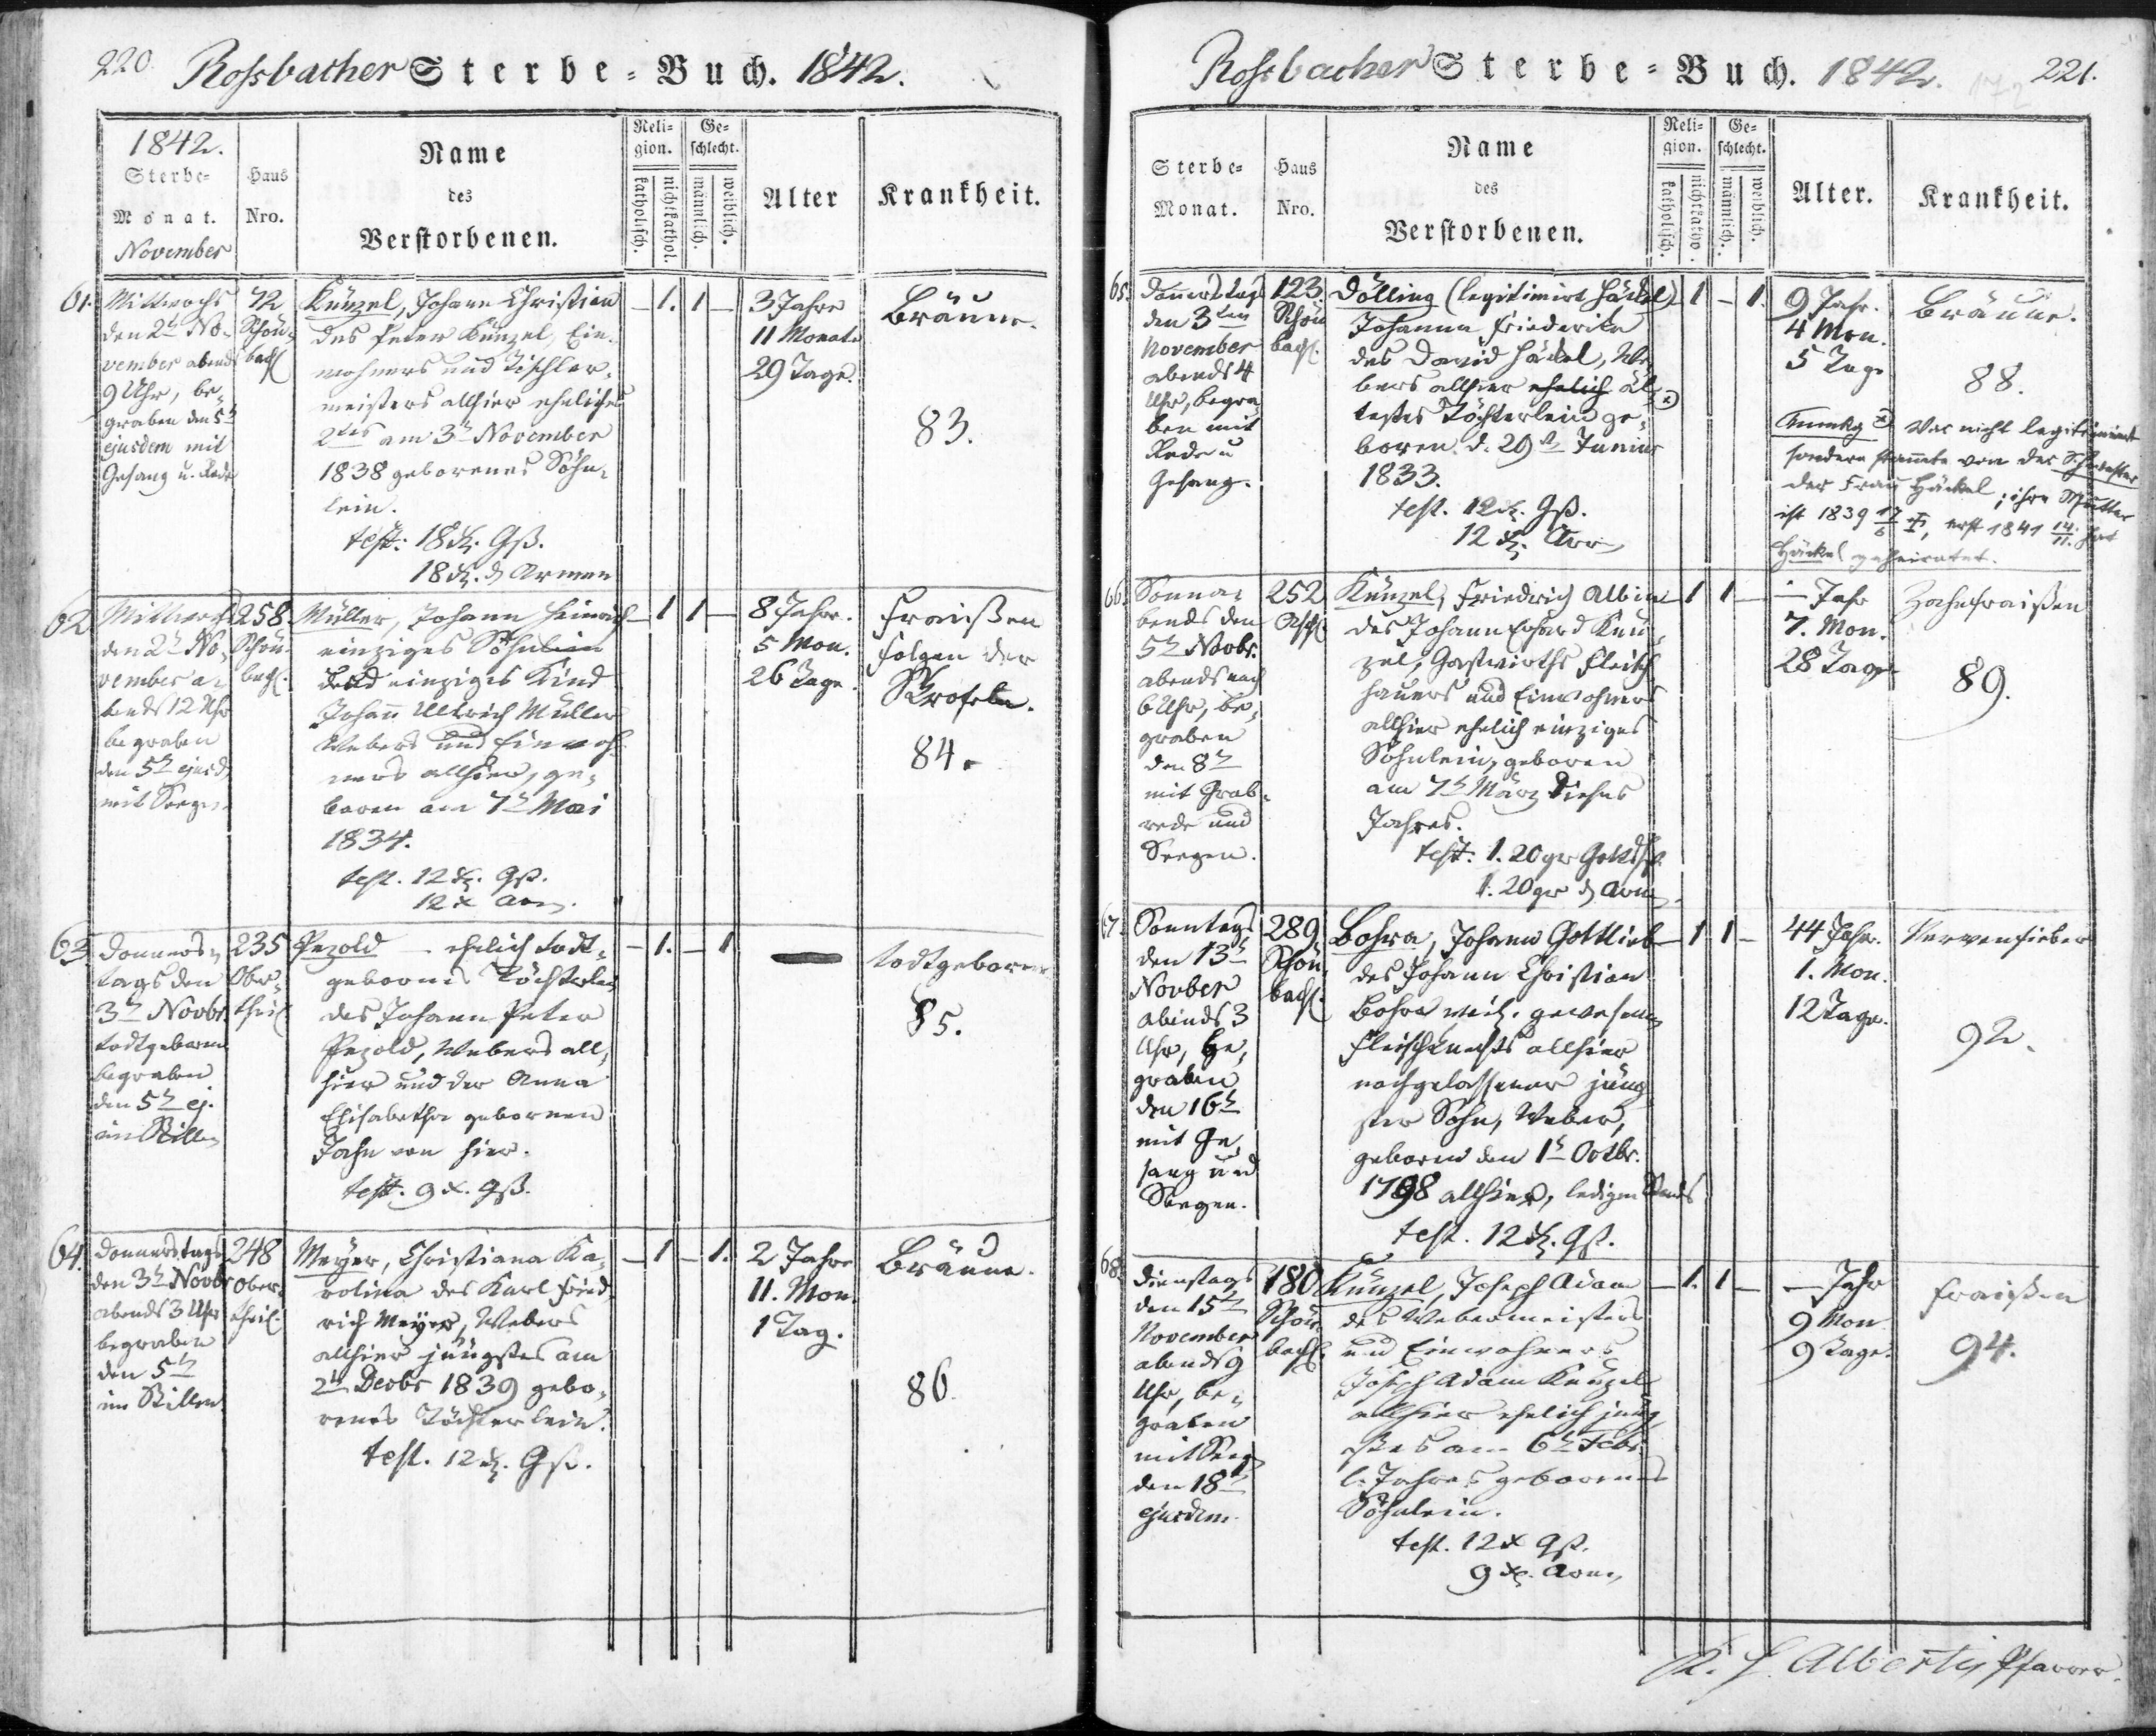 220. Rossbacher Sterbe-Buch. 1842.
1842.
Sterbe-
Monat.
November
Haus
Nro.
Name
des
Verstorbenen.
Reli-
gion.
katholisch.
nichtkathol.
Ge-
schlecht.
männlich.
weiblich.
Alter
Krankheit.
61.
Mittwochs
den 2t No-
vember abends
9 Uhr, be-
graben den 5t
ejusdem mit
Gesang u. Rede
72
Schön-
bach
Künzel, Johann Christian
des Peter Künzel, Ein-
wohners und Tischler-
meisters allhier eheliches
2tes am 3t November
1838 geborenes Söhn-
lein.
test: 18 x. Gß.
18 x. d Armen
– 1. 1 –
3 Jahre
11 Monate
29 Tage.
Bräune.
83.
62
Mittwochs
den 2t No-
vember a-
bends 12 Uhr
begraben
den 5t ejusd
mit Seegen
258
Schön-
bach.
Müller, Johann Heinrich
einziges Söhnlein
und einziges Kind
Johann Ullrich Müller
Webers und Einwoh-
ners allhier, ge-
boren am 7t Mai
1834.
test. 12 x. Gß.
12 x Arm.
– 1 1 –
8 Jahre.
5 Mon.
26 Tage.
Fraißen
Folgen der
Skrofeln.
84.
63.
Donners-
tags den
3t Novbr.
todtgeboren
begraben
den 5t ej.
im Stillen
235
Ober-
theil
Pezold – ehelich todt-
gebornes Töchterlein
des Johann Peter
Pezold, Webers all-
hier und der Anna
Elisabetha gebornen
Jahn von hier.
test. 9 x. Gß.
– 1. – 1
—
todtgeboren
85.
64.
Donnerstags
den 3t Novbr
abends 3 Uhr
begraben
den 5t
im Stillen.
248
Ober-
theil.
Meyer, Christiana Ka-
rolina des Karl Fried-
rich Meyer, Webers
allhier jüngstes am
2t Decbr 1839 gebo-
renes Töchterlein.
test. 12 x. Gß.
– 1 – 1.
2 Jahre
11. Mon.
1 Tag.
Bräune.
86.
Rossbacher Sterbe-Buch. 1842. 221.
172
Sterbe-
Monat.
Haus
Nro.
Name
des
Verstorbenen.
Reli-
gion.
katholisch.
nichtkatho.
Ge-
schlecht.
männlich.
weiblich.
Alter.
Krankheit.
65.
Donnerstags
den 3ten
November
abends 4
Uhr, begra-
ben mit
Rede u
Gesang.
123
Schön
bach.
Dölling (legitimirt Häckel)
Johanna Friederika
des David Häckel, We-
bers allhier ehelich äl-
testes Töchterlein ge-
boren d. 29t Junius
1833.
test. 12 x. Gß.
12 x. Arm
1 – 1.
9 Jahr.
4 Mon.
5 Tage
Bräune.
88.
Anmkg x) War nicht legitimiert
sondern stammte von der Schwester
der Frau Häckel; ihre Mutter
ist 1839 17/6 †, erst 1841 14/11. hat
Häckel geheiratet.
66.
Sonna-
bends den
5t Novbr.
abends nach
6 Uhr, be-
graben
den 8t
mit Grab-
rede und
Seegen.
252
Asch
Künzel, Friedrich Albin
des Johann Erhard Kün-
zel, Gastwirths Fleisch-
hauers und Einwohners
allhier ehelich einziges
Söhnlein, geboren
am 7t März dieses
Jahres.
test: 1. 20 gr Gottesh.
1. 20 gr d Arm
– 1 1 –
– Jahr
7. Mon.
28 Tage.
Zahnfraißen
89.
67.
Sonntags
den 13t
Novber
abends 3
Uhr, be-
graben
den 16t
mit Ge-
sang und
Seegen.
289.
Schön-
bach.
Bohra, Johann Gottlieb
des Johann Christian
Bohra weil. gewesenen
Fleischknechts allhier
nachgelassener jüng-
ster Sohn, Weber,
geboren den 1t Octbr.
1798 allhier, ledigen Stands
test. 12 x. Gß.
– 1 1 –
44 Jahr.
1. Mon.
12 Tage.
Nervenfieber
92.
68.
Dienstags
den 15t
November
abends 9
Uhr, be-
graben
mit Seeg
den 18t
ejusdem.
180
Schön-
bach.
Künzel, Joseph Adam
des Webermeisters
und Einwohners
Joseph Adam Künzel
allhier ehelich jüng-
stes am 6t Febr.
l. Jahres geborenes
Söhnlein.
test. 12 x Gß.
9 x. Arm.
– 1. 1 –
– Jahr
9 Mon
9 Tage.
Fraißen
94.
Alberti, Pfarrer.